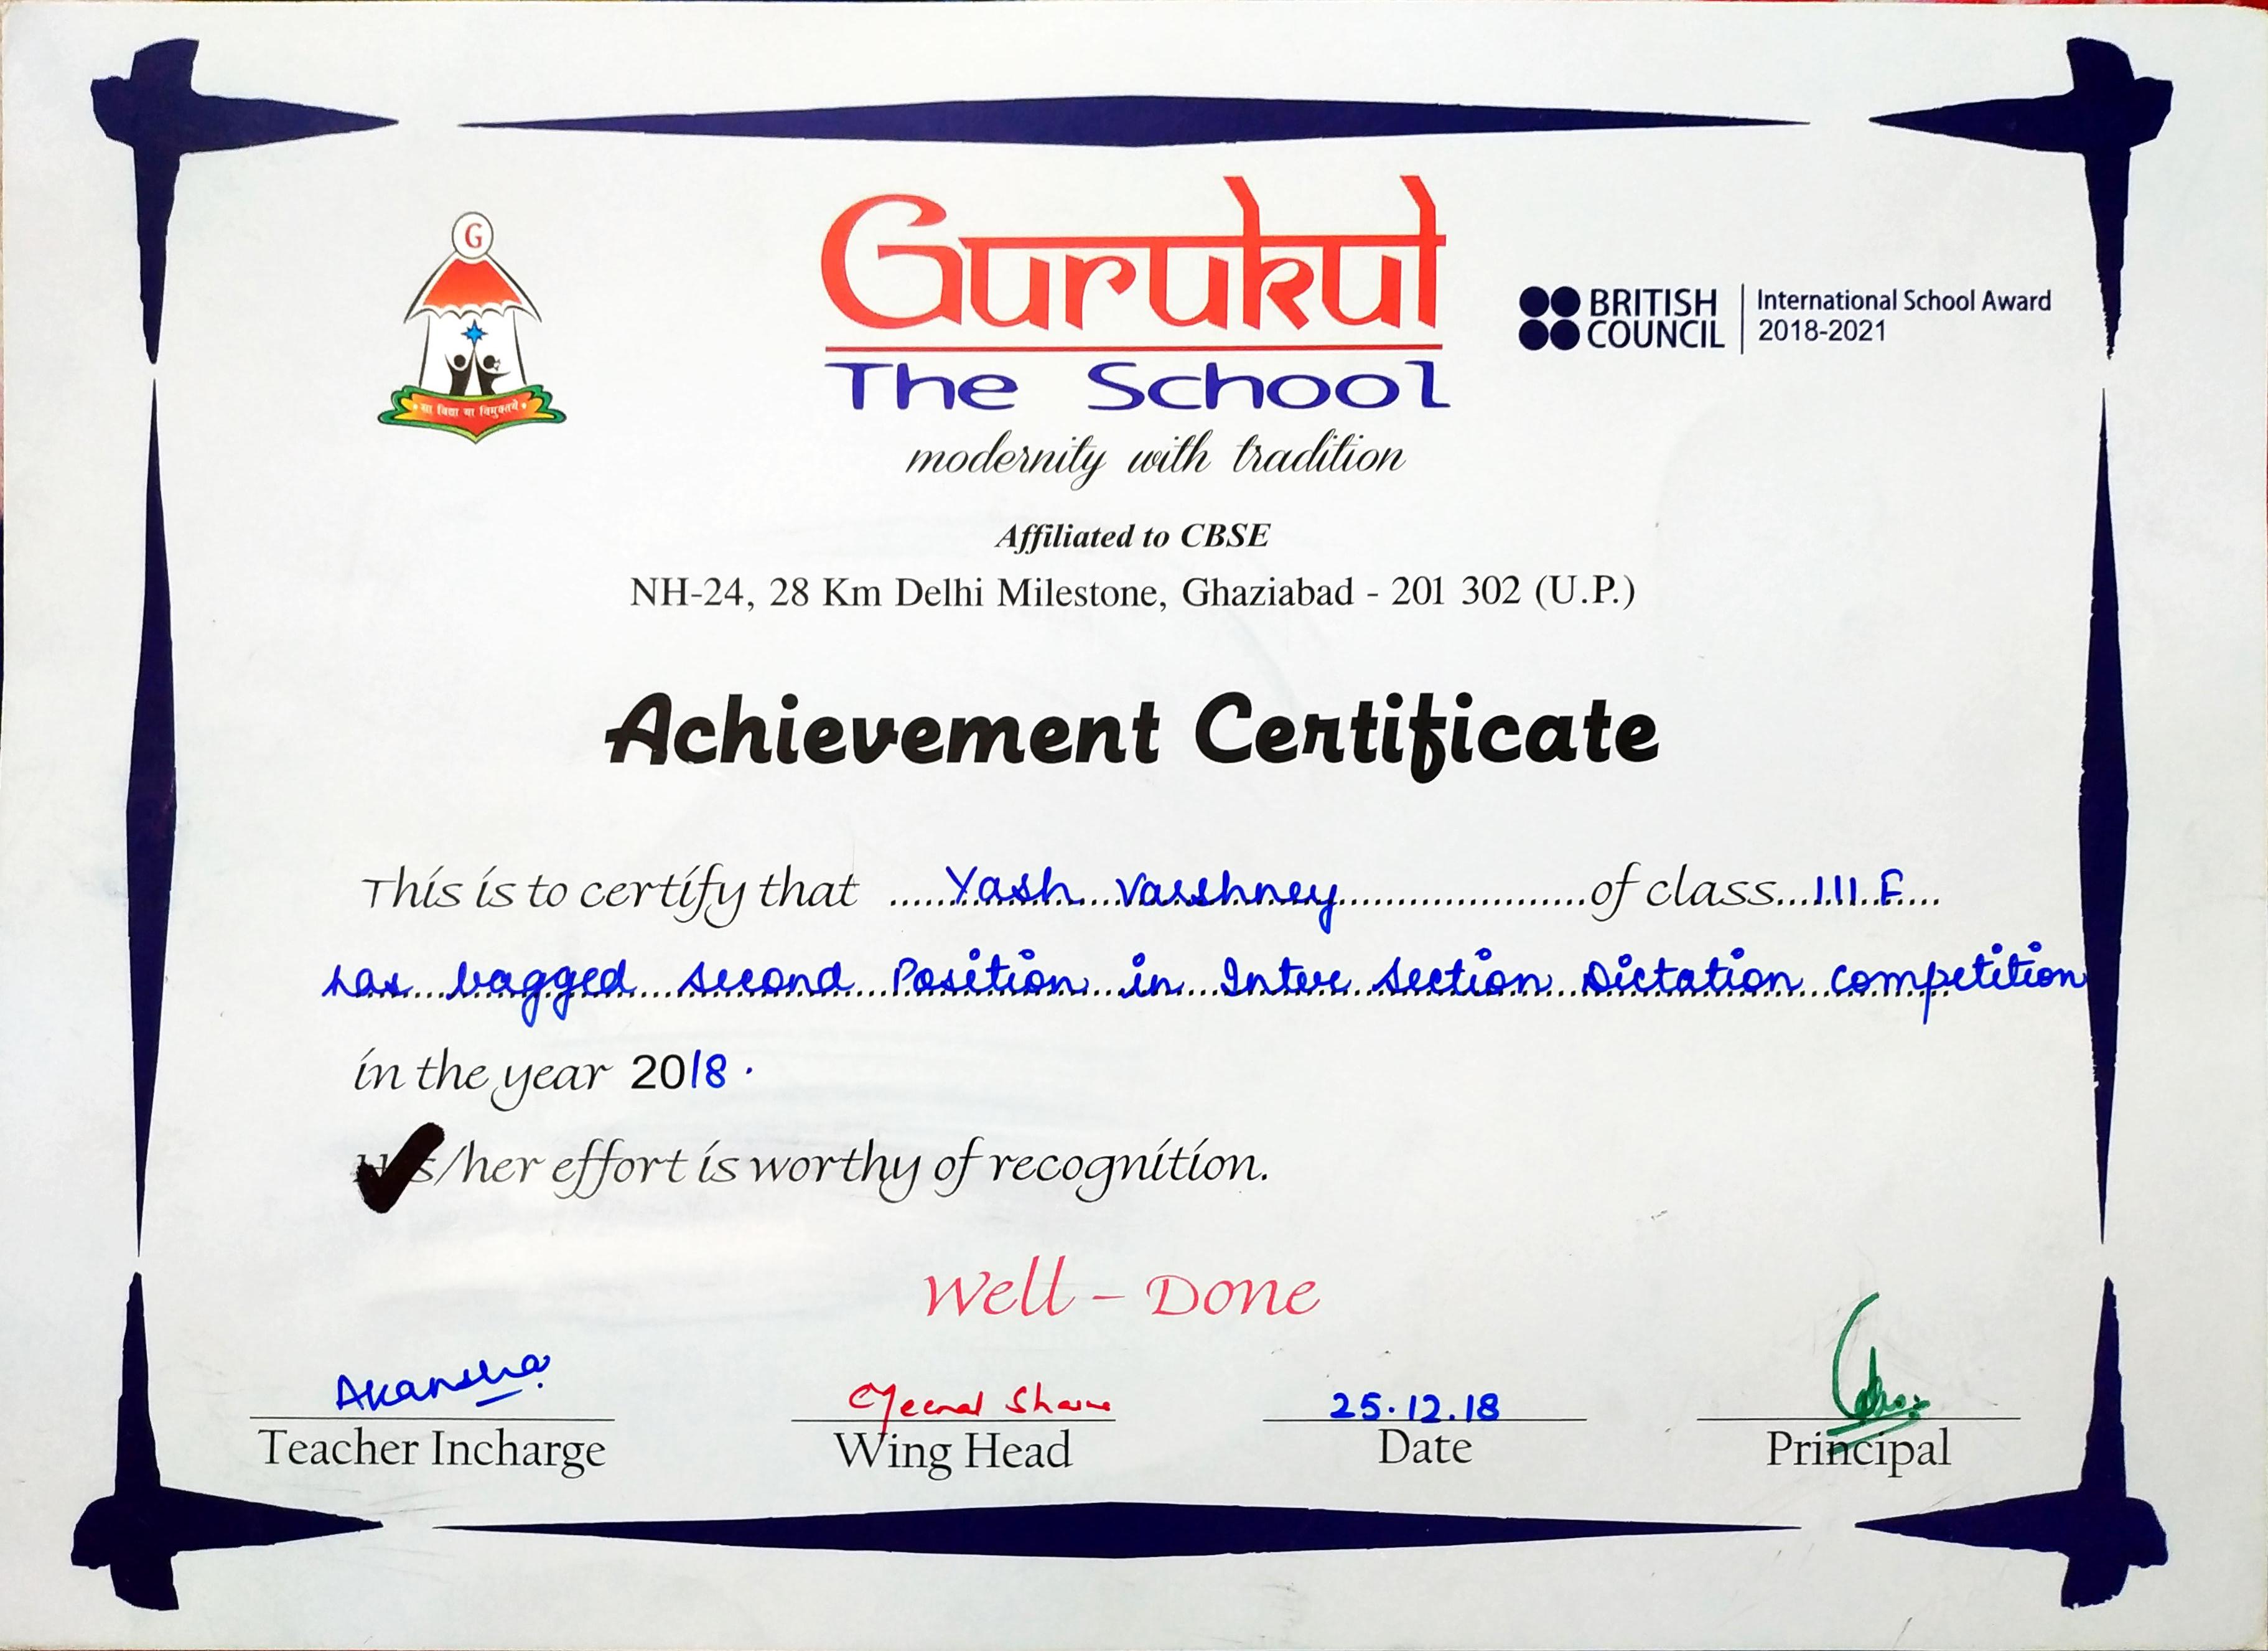 G
सा विद्या या विमुक्तये
Gurukul
The School
modernity with tradition
BRITISH COUNCIL
International School Award
2018-2021
Affiliated to CBSE
NH-24, 28 Km Delhi Milestone, Ghaziabad - 201 302 (U.P.)
Achievement Certificate
This is to certify that Yash Varshney of class III F
has bagged second Position in Inter section Dictation competition
in the year 2018.
His/her effort is worthy of recognition.
Well - Done
Akansha
Teacher Incharge
Meenal
Wing Head
25.12.18
Date
Principal